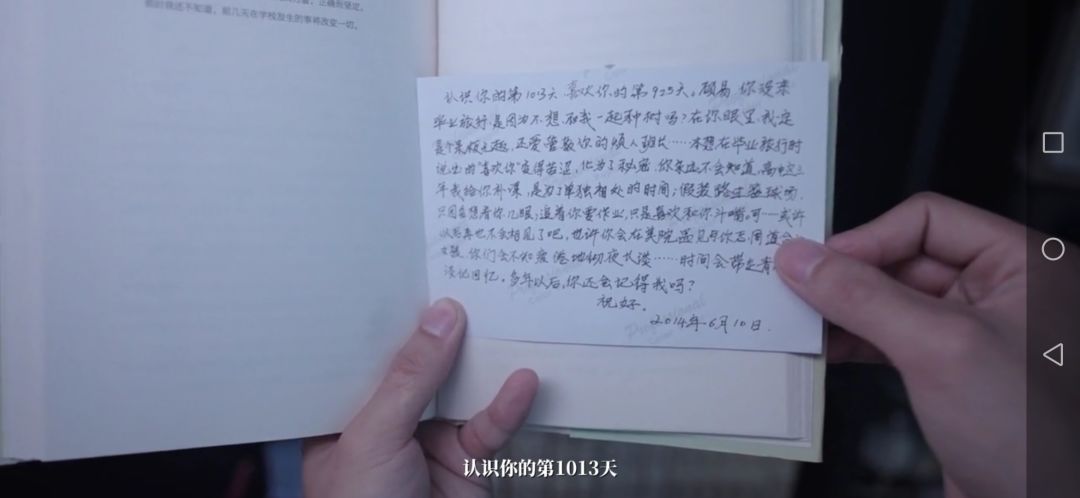 正确而坚定。
那时我还不知道，那几天在学校发生的事将改变一切。
认识你的第1013天 喜欢你的第925天。顾易 你没来
毕业旅行,是因为不想和我一起种树吗？在你眼里,我定
是个呆板无趣,还爱管教你的烦人班长……本想在毕业旅行时
说出的"喜欢你"变得苦涩,化为了秘密.你永远不会知道,高中这三
年我给你补课,是为了单独相处的时间；假装路过篮球场,
只因为想看你几眼；追着你要作业,只是喜欢和你斗嘴。可……或许
以后再也不会相见了吧,也许你会在美院遇见与你志同道合
女孩.你们会不知疲倦地彻夜长谈……时间会带走青
淡化回忆。多年以后,你还会记得我吗？
祝好。
2014年6月10日.
认识你的第1013天